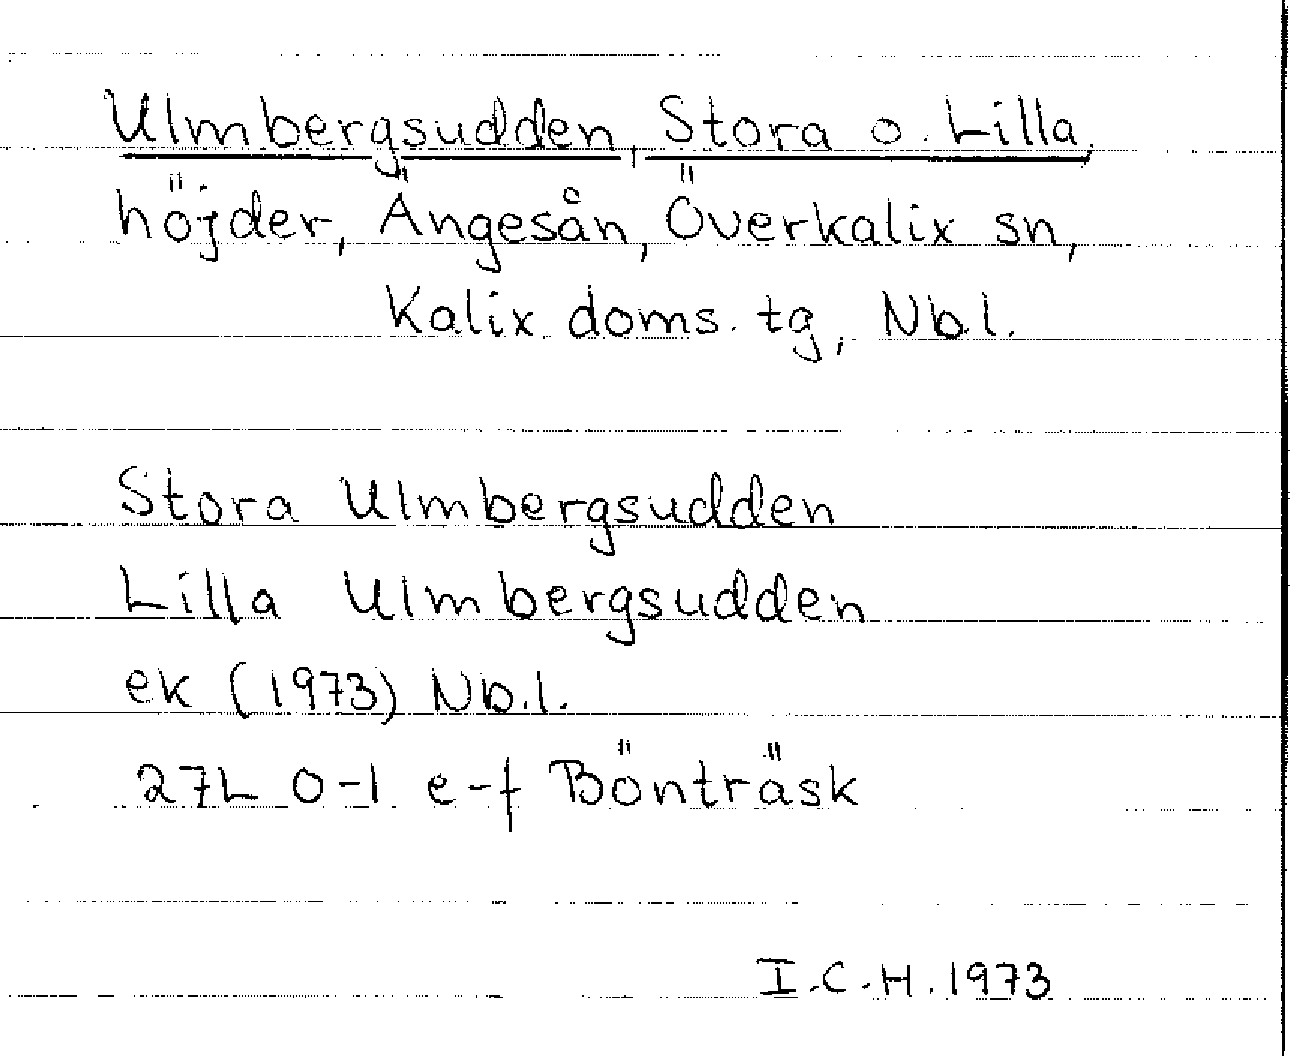 Ulmbergsudden, Stora o. Lilla,
höjder, Ängesån, Överkalix sn,
Kalix doms. tg, Nb.l.
Stora Ulmbergsudden
Lilla Ulmbergsudden
ek (1973) Nb.l.
27L 0-1 e-f Bönträsk
I.C.H. 1973